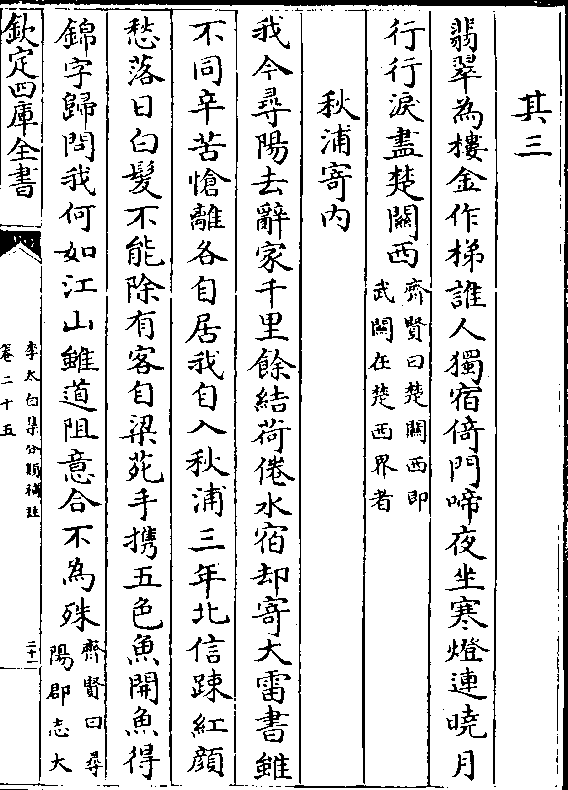 其三
翡翠為樓金作梯誰人獨宿倚門啼夜坐寒燈連曉月
行行淚盡楚關西
齊賢曰楚關西即
武關在楚西界者
秋浦寄内
我今尋陽去辭家千里餘結荷倦水宿却寄大雷書雖
不同辛苦愴離各自居我自入秋浦三年北信踈紅顔
愁落日白髮不能除有客自梁苑手携五色魚開魚得
錦字歸問我何如江山雖道阻意合不為殊
齊賢曰尋
陽郡志大
欽定四庫全書
李太白集分類補註
卷二十五